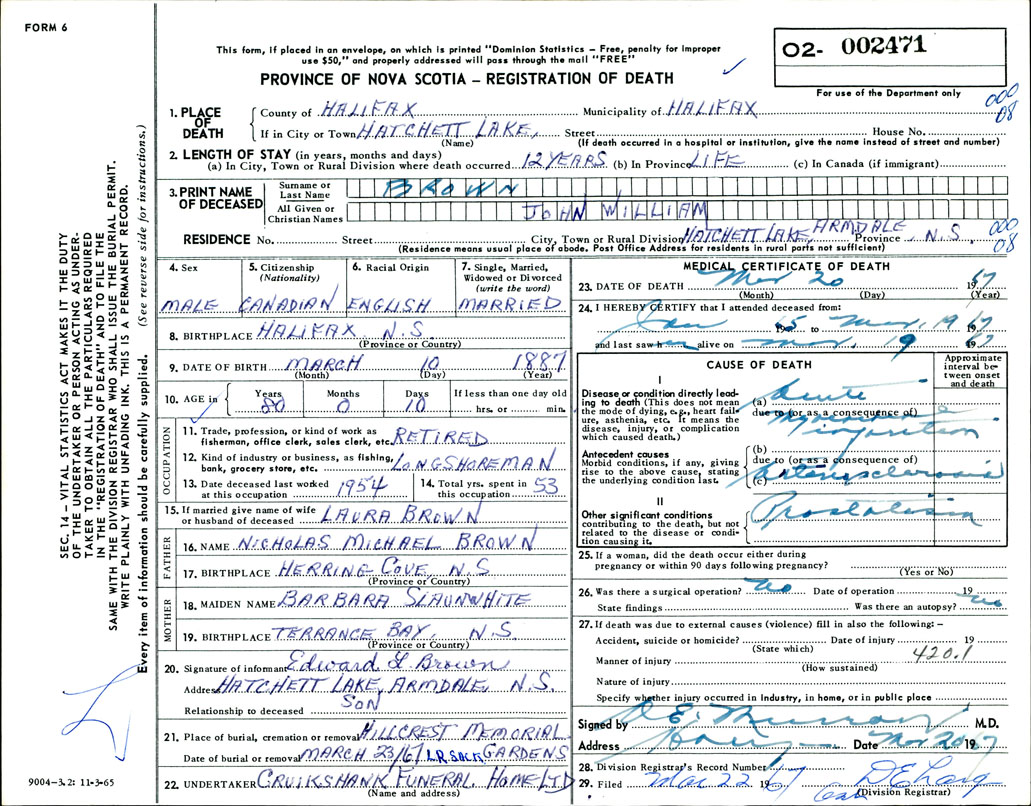 FORM 6
This form, if placed in an envelope, on which is printed "Dominion Statistics – Free, penalty for improper
use $50," and properly addressed will pass through the mail "FREE"
PROVINCE OF NOVA SCOTIA – REGISTRATION OF DEATH
02- 002471
For use of the Department only
000
08
1. PLACE OF DEATH
County of HALIFAX Municipality of HALIFAX
If in City or Town HATCHETT LAKE, Street House No.
(Name) (If death occurred in a hospital or institution, give the name instead of street and number)
2. LENGTH OF STAY (in years, months and days)
(a) In City, Town or Rural Division where death occurred 12 YEARS (b) In Province LIFE (c) In Canada (if immigrant)
3. PRINT NAME OF DECEASED
Surname or Last Name BROWN
All Given or Christian Names JOHN WILLIAM
RESIDENCE No. Street City, Town or Rural Division HATCHETT LAKE, ARMDALE Province N.S.
000
08
(Residence means usual place of abode. Post Office Address for residents in rural parts not sufficient)
4. Sex
MALE
5. Citizenship (Nationality)
CANADIAN
6. Racial Origin
ENGLISH
7. Single, Married, Widowed or Divorced (write the word)
MARRIED
8. BIRTHPLACE HALIFAX N.S.
(Province or Country)
9. DATE OF BIRTH MARCH 10 1887
(Month) (Day) (Year)
10. AGE in Years 80 Months 0 Days 10 If less than one day old hrs. or min.
OCCUPATION
11. Trade, profession, or kind of work as fisherman, office clerk, sales clerk, etc. RETIRED
12. Kind of industry or business, as fishing, bank, grocery store, etc. LONGSHOREMAN
13. Date deceased last worked at this occupation 1954
14. Total yrs. spent in this occupation 53
15. If married give name of wife or husband of deceased LAURA BROWN
FATHER
16. NAME NICHOLAS MICHAEL BROWN
17. BIRTHPLACE HERRING COVE, N.S
(Province or Country)
MOTHER
18. MAIDEN NAME BARBARA SLAUNWHITE
19. BIRTHPLACE TERRANCE BAY, N.S
(Province or Country)
20. Signature of informant Edward L Brown
Address HATCHETT LAKE, ARMDALE, N.S.
Relationship to deceased SON
21. Place of burial, cremation or removal HILLCREST MEMORIAL
Date of burial or removal MARCH 23/67 GARDENS
22. UNDERTAKER CRUIKSHANK FUNERAL HOME LTD
(Name and address)
MEDICAL CERTIFICATE OF DEATH
23. DATE OF DEATH Mar 20 1967
(Month) (Day) (Year)
24. I HEREBY CERTIFY that I attended deceased from:
Jan 65 to Mar, 19 1967
and last saw him alive on Mar, 19 1967
CAUSE OF DEATH
Approximate interval between onset and death
I
Disease or condition directly leading to death (This does not mean the mode of dying, e.g., heart failure, asthenia, etc. It means the disease, injury, or complication which caused death.)
(a) Acute
due to (or as a consequence of)
infarction
Antecedent causes
Morbid conditions, if any, giving rise to the above cause, stating the underlying condition last.
(b)
due to (or as a consequence of)
(c) Arteriosclerosis
II
Other significant conditions contributing to the death, but not related to the disease or condition causing it.
Prostatism
25. If a woman, did the death occur either during
pregnancy or within 90 days following pregnancy?
(Yes or No)
26. Was there a surgical operation? no Date of operation 19
State findings Was there an autopsy? no
27. If death was due to external causes (violence) fill in also the following: –
Accident, suicide or homicide? Date of injury 19
(State which)
420.1
Manner of injury
(How sustained)
Nature of injury
Specify whether injury occurred in industry, in home, or in public place
Signed by E. Murray M.D.
Address Date Mar 20 1967
28. Division Registrar's Record Number
29. Filed Mar 22 1967
(Division Registrar)
SEC. 14 – VITAL STATISTICS ACT MAKES IT THE DUTY
OF THE UNDERTAKER OR PERSON ACTING AS UNDER-
TAKER TO OBTAIN ALL THE PARTICULARS REQUIRED
IN THE "REGISTRATION OF DEATH" AND TO FILE THE
SAME WITH THE DIVISION REGISTRAR WHO SHALL ISSUE THE BURIAL PERMIT.
WRITE PLAINLY WITH UNFADING INK. THIS IS A PERMANENT RECORD.
Every item of information should be carefully supplied. (See reverse side for instructions.)
9004–3.2: 11-3-65